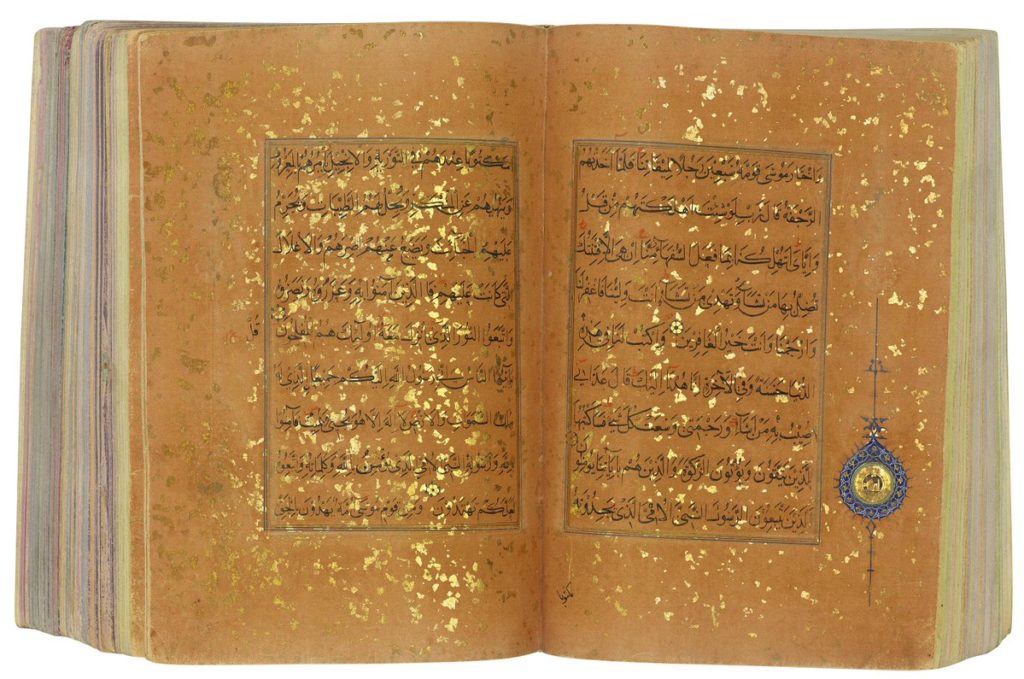 واختار موسى قومه سبعين رجلا لميقاتنا فلما اخذتهم
الرجفة قال رب لو شئت اهلكتهم من قبل
واياى اتهلكنا بما فعل السفهاء منا ان هى الا فتنتك
تضل بها من تشاء وتهدى من تشاء انت ولينا فاغفر لنا
وارحمنا وانت خير الغافرين واكتب لنا فى هذه
الدنيا حسنة وفى الآخرة انا هدنا اليك قال عذابى
اصيب به من اشاء ورحمتى وسعت كل شىء فساكتبها
للذين يتقون ويؤتون الزكوة والذين هم بآياتنا يؤمنون
الذين يتبعون الرسول النبى الامى الذى يجدونه
مكتوبا
مكتوبا عندهم فى التورية والانجيل يأمرهم بالمعروف
وينهيهم عن المنكر ويحل لهم الطيبات ويحرم
عليهم الخبائث ويضع عنهم اصرهم والاغلال
التى كانت عليهم فالذين آمنوا به وعزروه ونصروه
واتبعوا النور الذى انزل معه اولئك هم المفلحون قل
يا ايها الناس انى رسول الله اليكم جميعا الذى له
ملك السموات والارض لا اله الا هو يحيى ويميت فآمنوا
بالله ورسوله النبى الامى الذى يؤمن بالله وكلماته واتبعوه
لعلكم تهتدون ومن قوم موسى امة يهدون بالحق